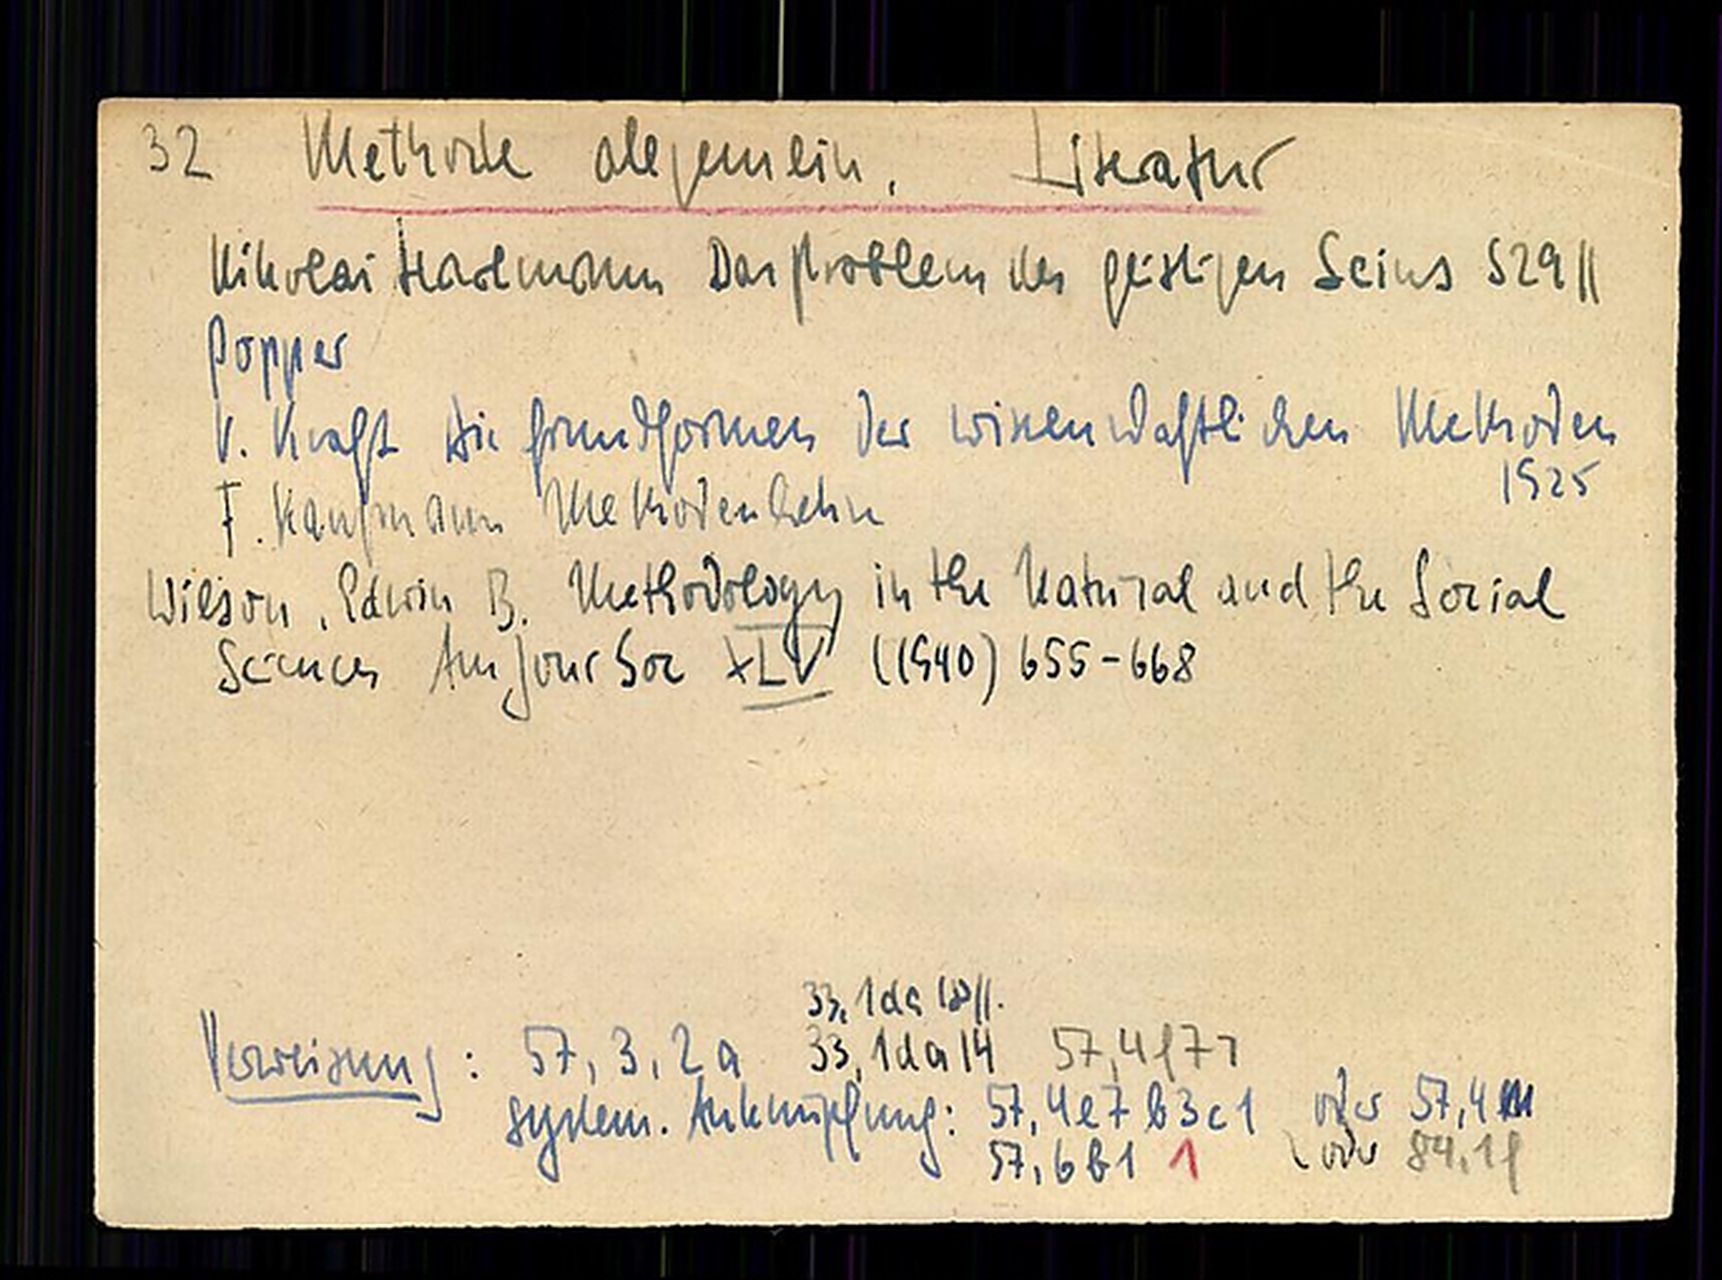 32 Methode allgemein, Literatur
Nikolai Hartmann Das Problem des geistigen Seins S 29 ff
Popper
V. Kraft Die Grundformen der wissenschaftlichen Methoden
1925
F. Kaufmann Methodenlehre
Wilson, Edwin B. Methodology in the Natural and the Social
Sciences Am Jour Soc XLV (1940) 655-668
33,1da 18ff.
Verweisung: 57,3,2a 33,1da14 57,4f7
system. Anknüpfung: 57,4e7b3c1 oder 57,4
57,6b1 1 oder 84,1f